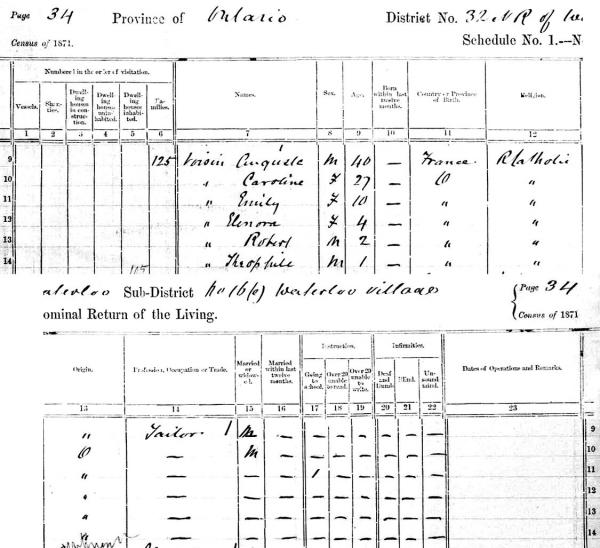 Page 34 Province of Ontario District No. 32 N R of
Census of 1871. Schedule No. 1.—N
Numbered in the order of visitation.
Vessels. Shanties. Dwelling houses in construction. Dwelling houses uninhabited. Dwelling houses inhabited. Families. Names. Sex. Age. Born within last twelve months. Country or Province of Birth. Religion.
1 2 3 4 5 6 7 8 9 10 11 12
9 125 Voisin Auguste M 40 — France R Catholic
10 " Caroline F 27 — O "
11 " Emily F 10 — " "
12 " Elenora F 4 — " "
13 " Robert M 2 — " "
14 " Theophile M 1 — " "
aterloo Sub-District No (b) Waterloo Village Page 34
ominal Return of the Living. Census of 1871
Instruction. Infirmities.
Origin. Profession, Occupation or Trade. Married or widowed. Married within last twelve months. Going to school. Over 20 unable to read. Over 20 unable to write. Deaf and Dumb. Blind. Unsound mind. Dates of Operations and Remarks.
13 14 15 16 17 18 19 20 21 22 23
" Tailor 1 M — — — — — — — 9
O — M — — — — — — — 10
" — — — 1 — — — — — 11
" — — — — — — — — — 12
" — — — — — — — — — 13
" — — — — — — — — — 14